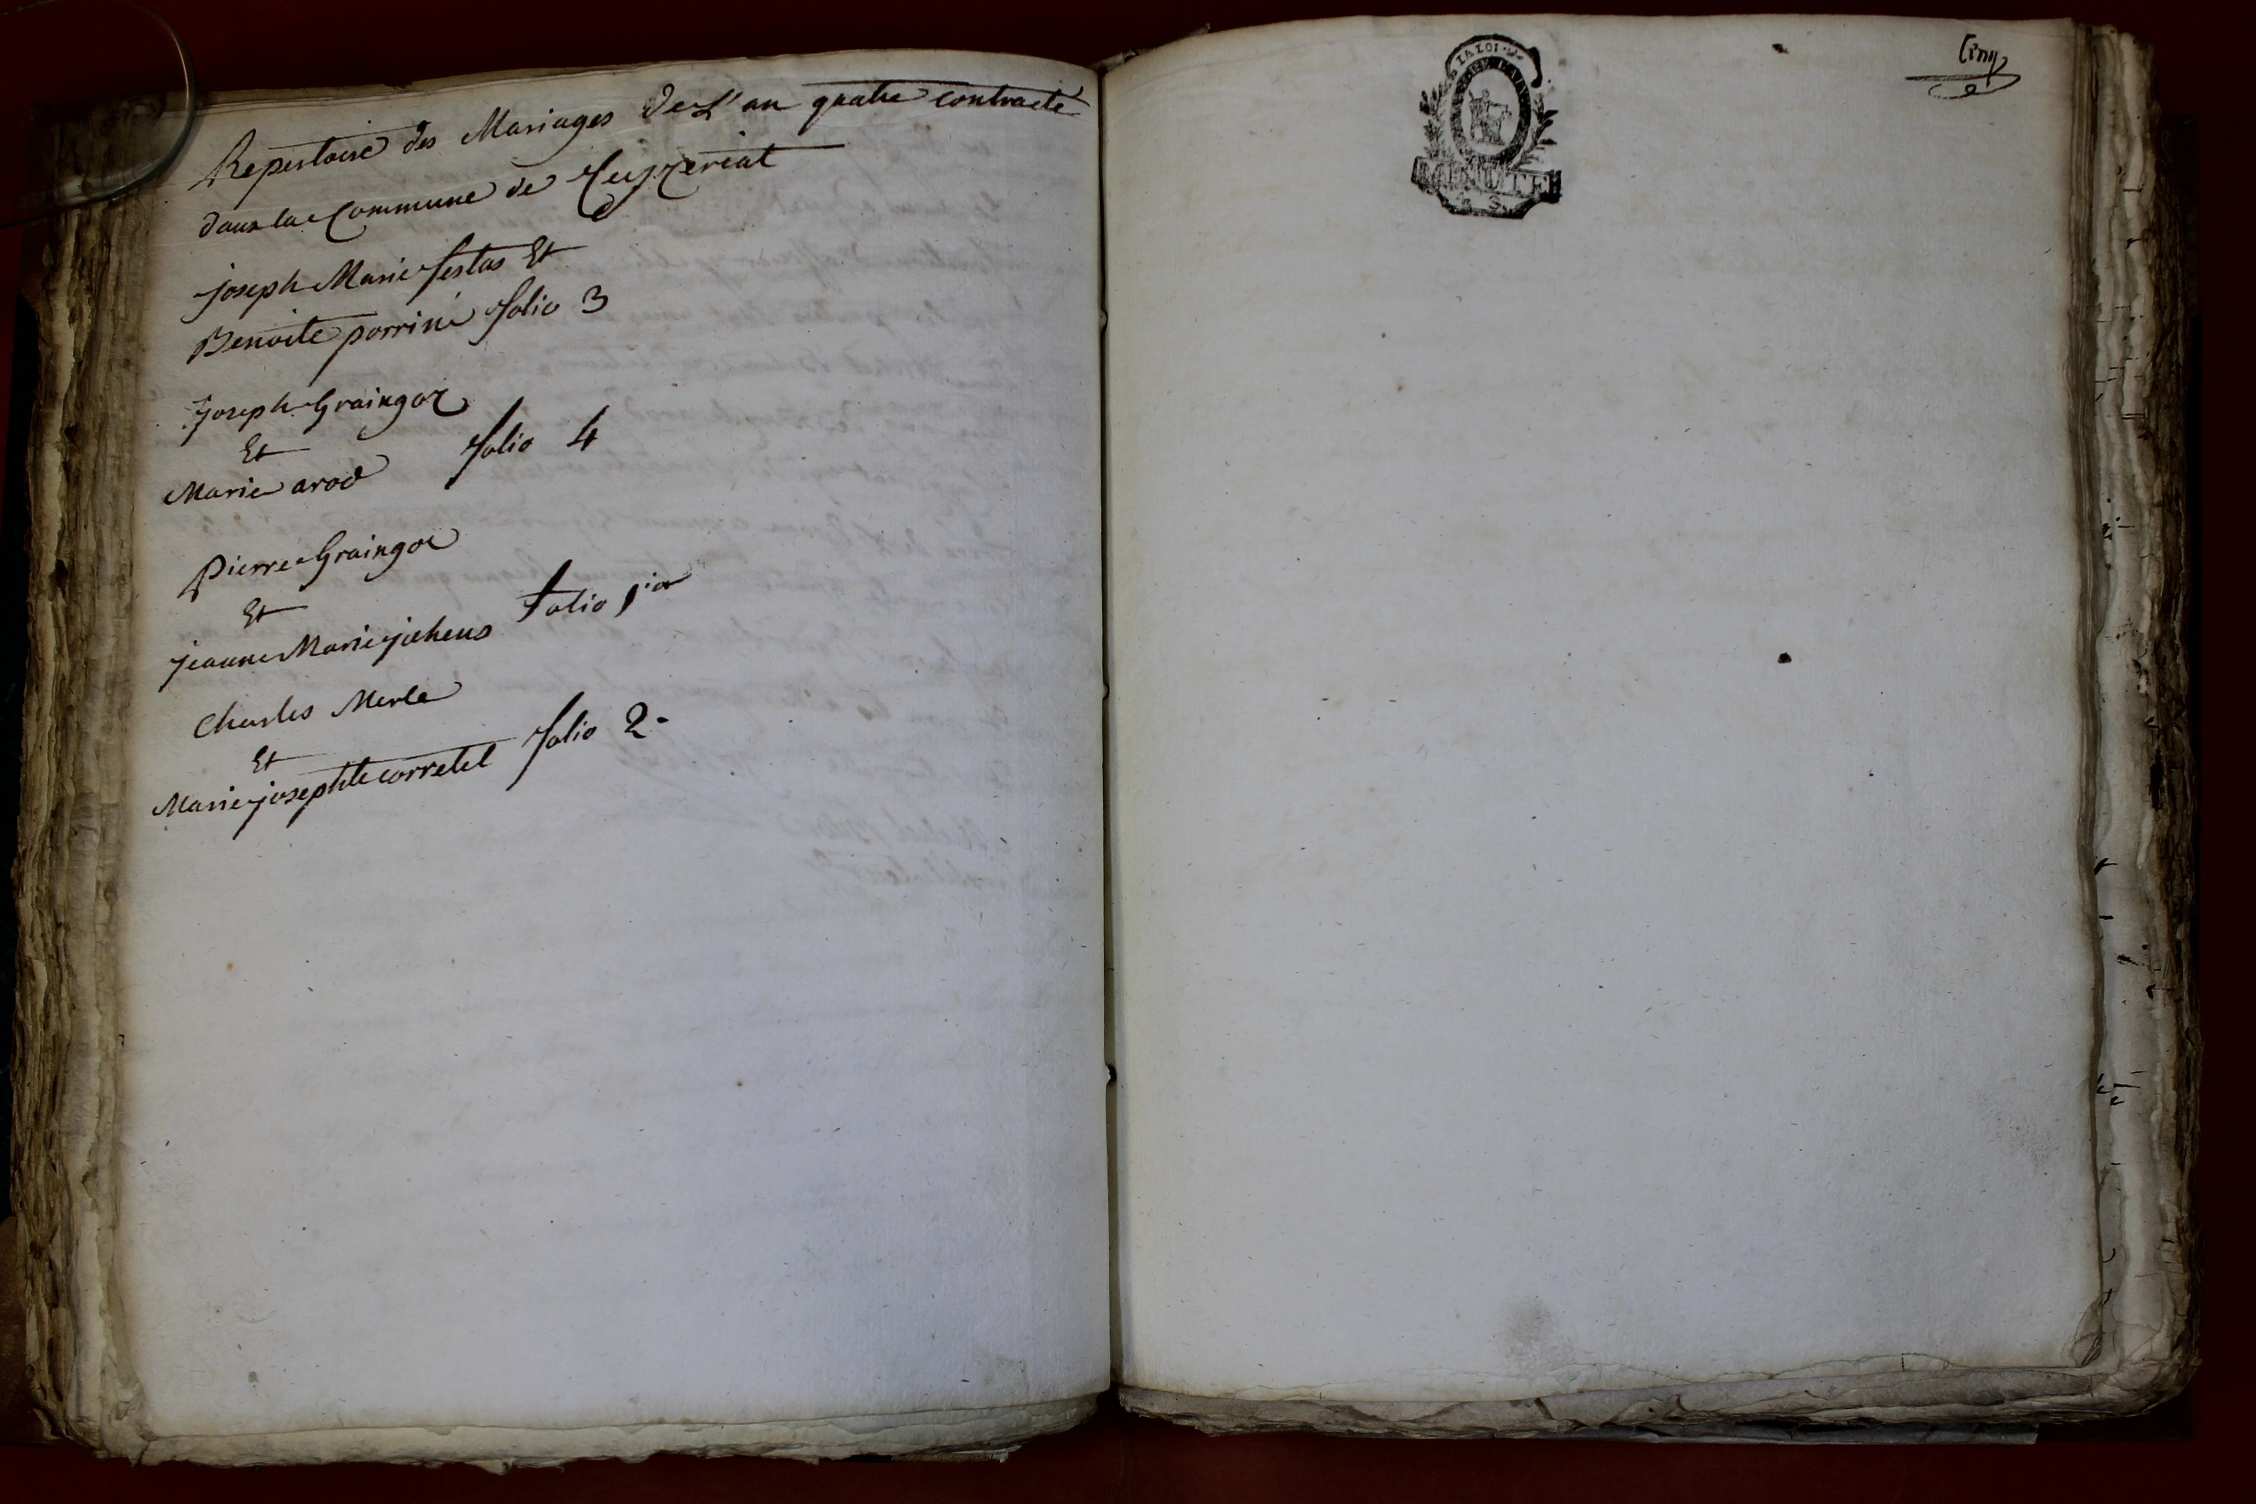 Repertoire des Mariages de L'an quatre contracté
dans la Commune de Ceyzeriat
joseph Marie festas Et
Benoite perrin folio 3
Joseph Graingor
Et
Marie arod folio 4
Pierre Graingor
Et
jeanne Marie folio 1.er
Charles Merle
Et
Marie josephte corretel folio 2.
LA LOI
MINUTE